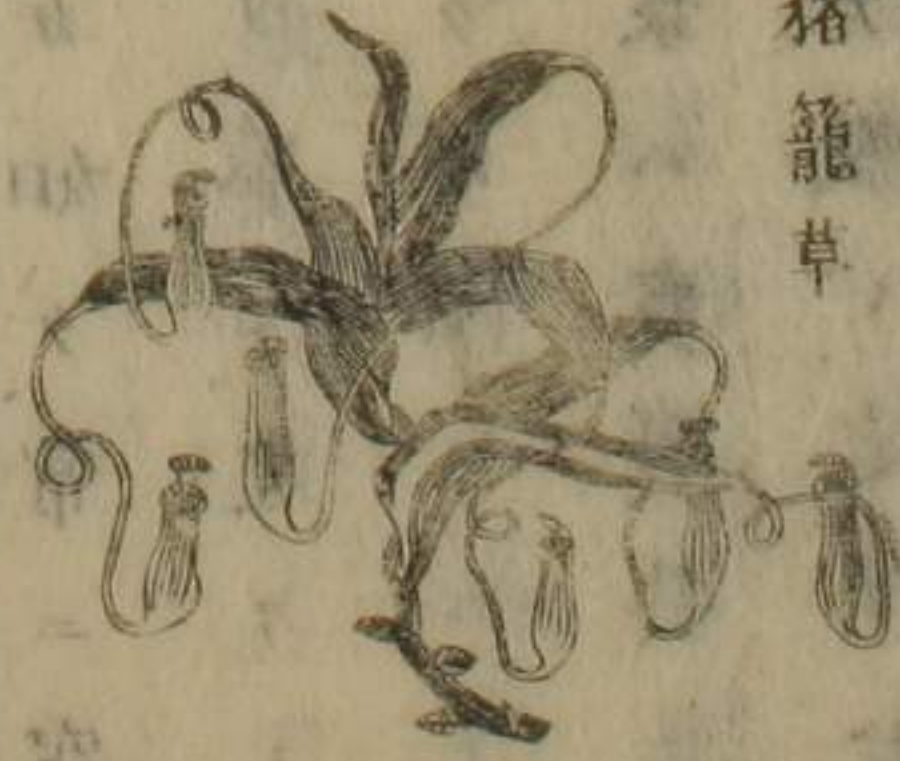 猪籠草